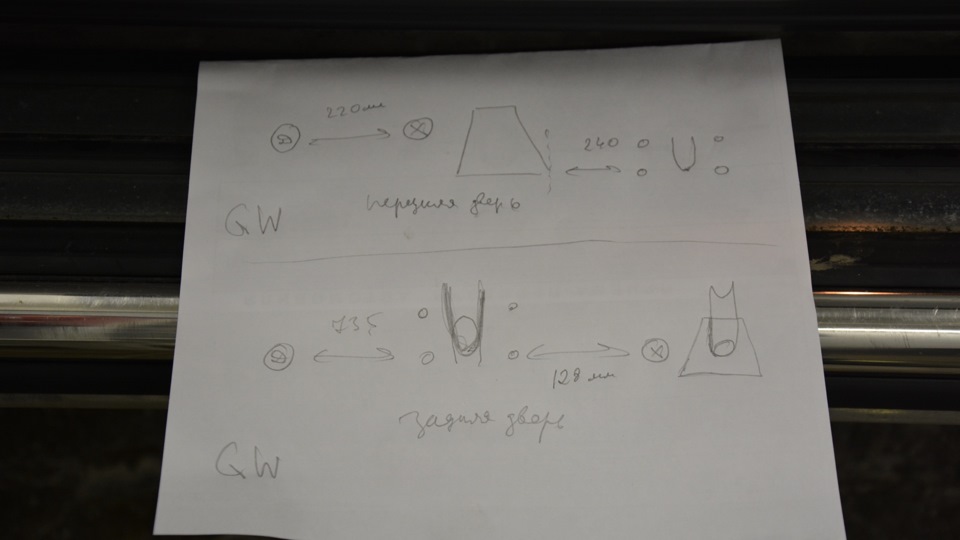 220 мм
240
передняя дверь
GW
735
128 мм
задняя дверь
GW